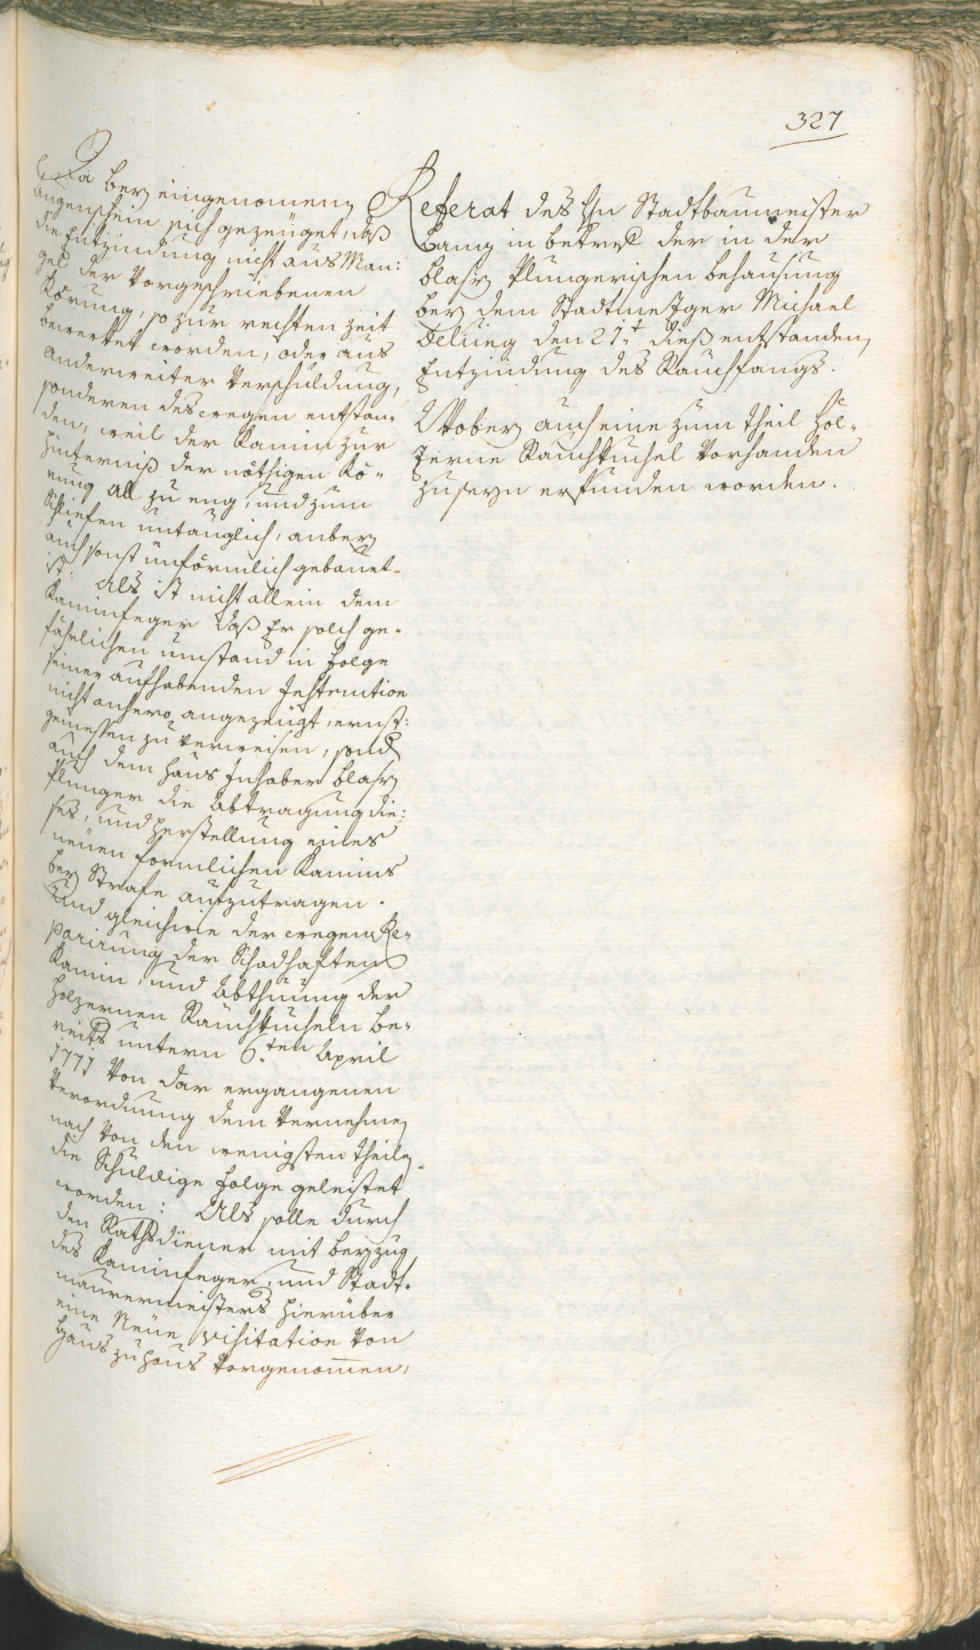 327
Referat des H̅n Stadtbaumeister
Lang in betreff der in der
blasy Plungerischen behausung
bey dem Stadtmezger Michael
Delueg den 21.t dieß entstanden,
Entzindung des Rauchfangs.
Wobey auch eine zum theil höl-
zerne Rauchkuchel vorhanden
zuseyn erfunden worden.
Da bey eingenomenen
Augenschein sich gezeüget, daß
die Entzindung nicht aus Man:
gel der vorgeschriebenen
Körung, so zur rechten zeit
bewerket worden, oder aus
anderweiter verschuldung,
sonderen deswegen entstan-
den, weil der Kamin zur
hinterniß der nöthigen Kö-
rung all zu eng, und zum
Schliefen untauglich, anbey
auch sonst unförmlich gebauet
ist: Als ist nicht allein dem
Kaminfeger daß Er solch ge-
fährlichen umstand in folge
seiner aufhabenden Instruction
nicht anhero angezeügt, ernst:
gemessen zu verweisen, sond
auch dem Haus Inhaber blasy
Plunger die Abtragung die:
ses, und herstellung eines
neuen formlichen Kamins
bey Strafe aufzutragen.
Und gleichwie der wegen Re-
parirung der Schadhaften
Kamin, und Abthuung der
holzernen Rauchkucheln be-
reits untern 6.ten April
1771 von dar ergangenen
Verordnung dem Vernehmen
nach von den wenigsten theilen
die Schuldige folge geleistet
worden: Als solle durch
den Rathsdiener mit beyzug
des Kaminfeger, und Stadt-
maurermeisters hierüber
eine Neüe visitation von
Haus zu haus vorgenomen,